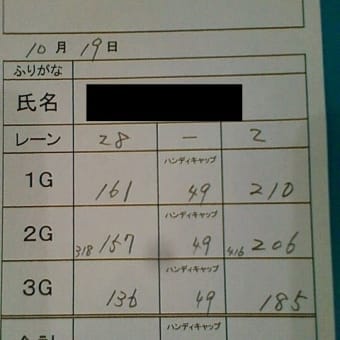 10月19日
ふりがな
氏名
レーン 28 - 2
ハンディキャップ
1G 161 49 210
ハンディキャップ
2G 318 157 49 416 206
ハンディキャップ
3G 136 49 185
ハンディキャップ